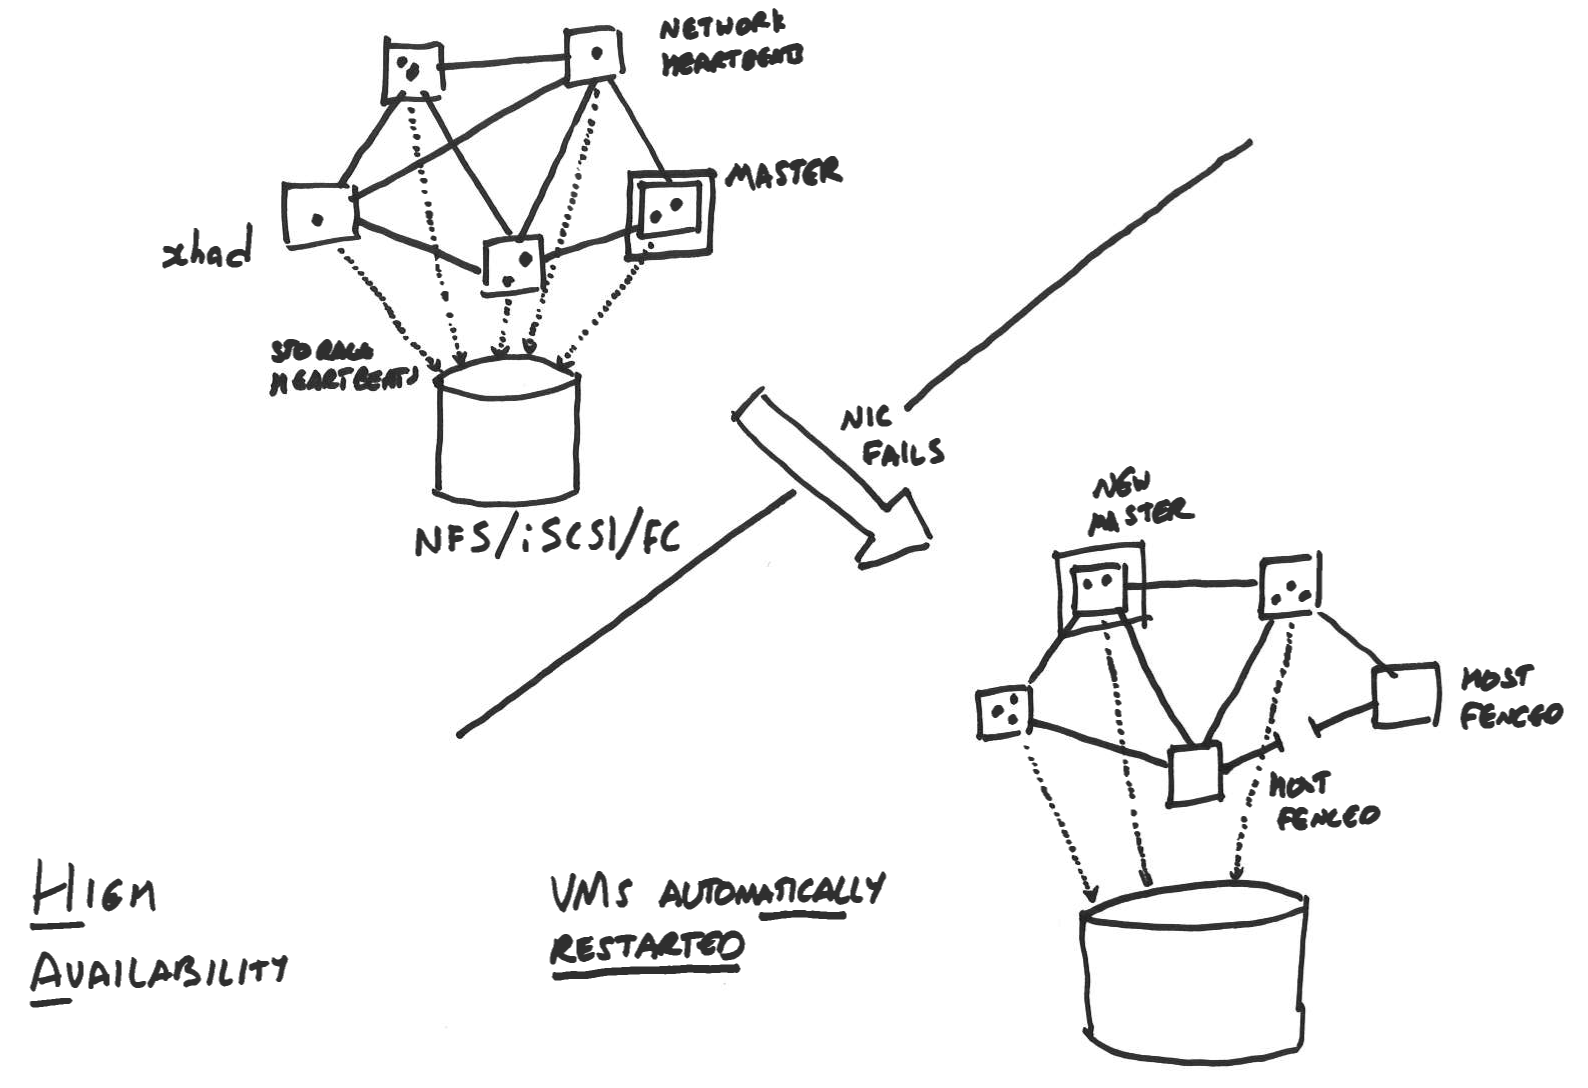 NETWORK
HEARTBEATS
MASTER
xhad
STORAGE
HEARTBEATS
NFS/iSCSI/FC
NIC
FAILS
NEW
MASTER
HOST
FENCED
HOST
FENCED
HIGH
AVAILABILITY
VMS AUTOMATICALLY
RESTARTED